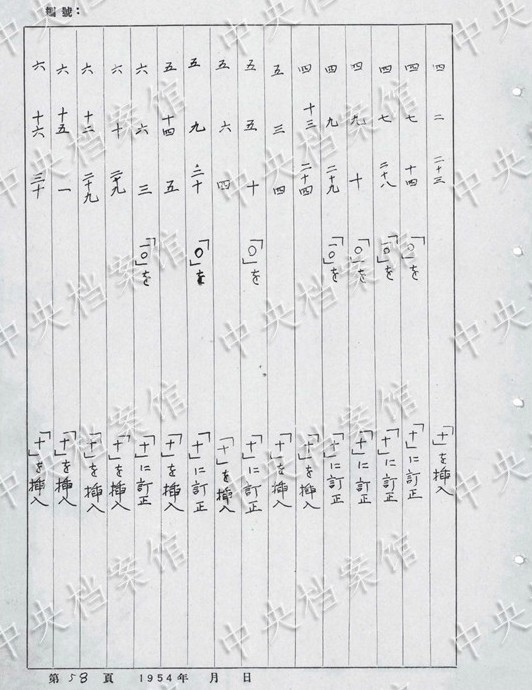 編號：
四 二 二十三 「十」を挿入
四 七 十四 「〇」を 「十」に訂正
四 七 二十八 「一〇」を 「十」に訂正
四 九 十 「一〇」を 「十」に訂正
四 九 二十九 「一〇」を 「十」に訂正
四 十三 二十四 「十」を挿入
五 三 四 「十」を挿入
五 五 十 「〇」を 「十」に訂正
五 六 四 「十」を挿入
五 九 二十 「〇」を 「十」に訂正
五 十四 五 「十」を挿入
六 六 三 「一〇」を 「十」に訂正
六 十 二十九 「十」を挿入
六 十二 二十九 「十」を挿入
六 十五 一 「十」を挿入
六 十六 三十 「十」を挿入
第 58 頁 1954年 月 日
中央档案馆